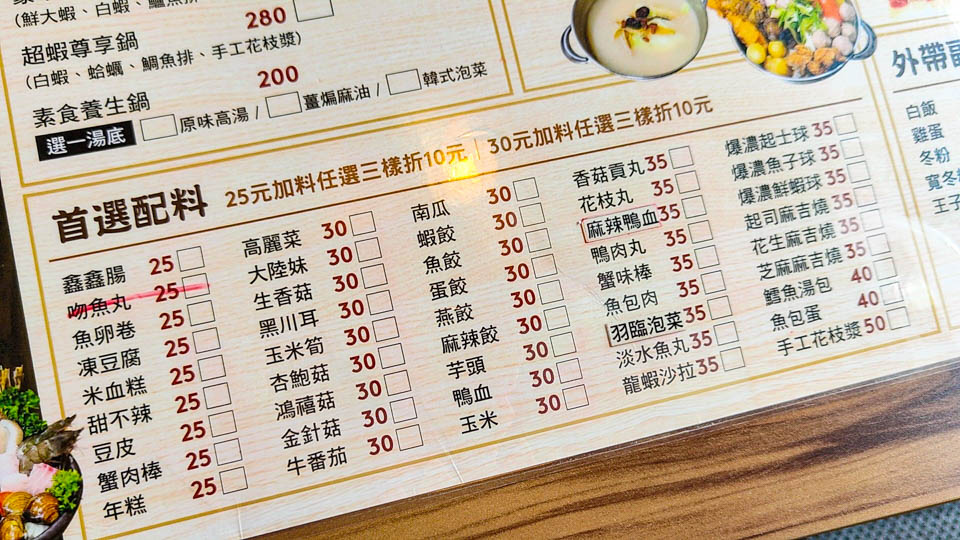 (鮮大蝦、白蝦、鱸魚排
280
超蝦尊享鍋
(白蝦、蛤蠣、鯛魚排、手工花枝漿)
200
素食養生鍋
選一湯底 原味高湯 / 薑煸麻油 / 韓式泡菜
首選配料 25元加料任選三樣折10元 | 30元加料任選三樣折10元
鑫鑫腸 25
吻魚丸 25
魚卵卷 25
凍豆腐 25
米血糕 25
甜不辣 25
豆皮 25
蟹肉棒 25
年糕 25
高麗菜 30
大陸妹 30
生香菇 30
黑川耳 30
玉米筍 30
杏鮑菇 30
鴻禧菇 30
金針菇 30
牛番茄 30
南瓜 30
蝦餃 30
魚餃 30
蛋餃 30
燕餃 30
麻辣餃 30
芋頭 30
鴨血 30
玉米 30
香菇貢丸 35
花枝丸 35
麻辣鴨血 35
鴨肉丸 35
蟹味棒 35
魚包肉 35
羽臨泡菜 35
淡水魚丸 35
龍蝦沙拉 35
爆濃起士球 35
爆濃魚子球 35
爆濃鮮蝦球 35
起司麻吉燒 35
花生麻吉燒 35
芝麻麻吉燒 35
鱈魚湯包 40
魚包蛋 40
手工花枝漿 50
外帶
白飯
雞蛋
冬粉
寬冬
王子